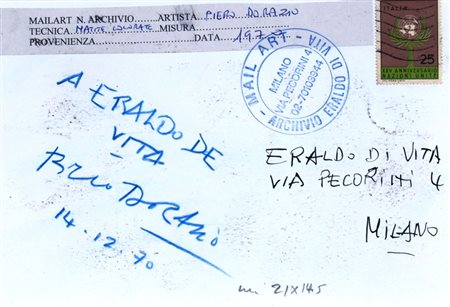 MAILART N. ARCHIVIO ARTISTA PIERO DORAZIO
TECNICA MATITE COLORATE MISURA
PROVENIENZA DATA 19.7
MAIL ART - ARCHIVIO ERALDO DI VITA -
MILANO
VIA PECORINI 4
02-70103944
ITALIA
25
XXV ANNIVERSARIO
NAZIONI UNITE
A ERALDO DE
VITA
PIERO DORAZIO
14.12.70
ERALDO DI VITA
VIA PECORINI 4
MILANO
21X14,5